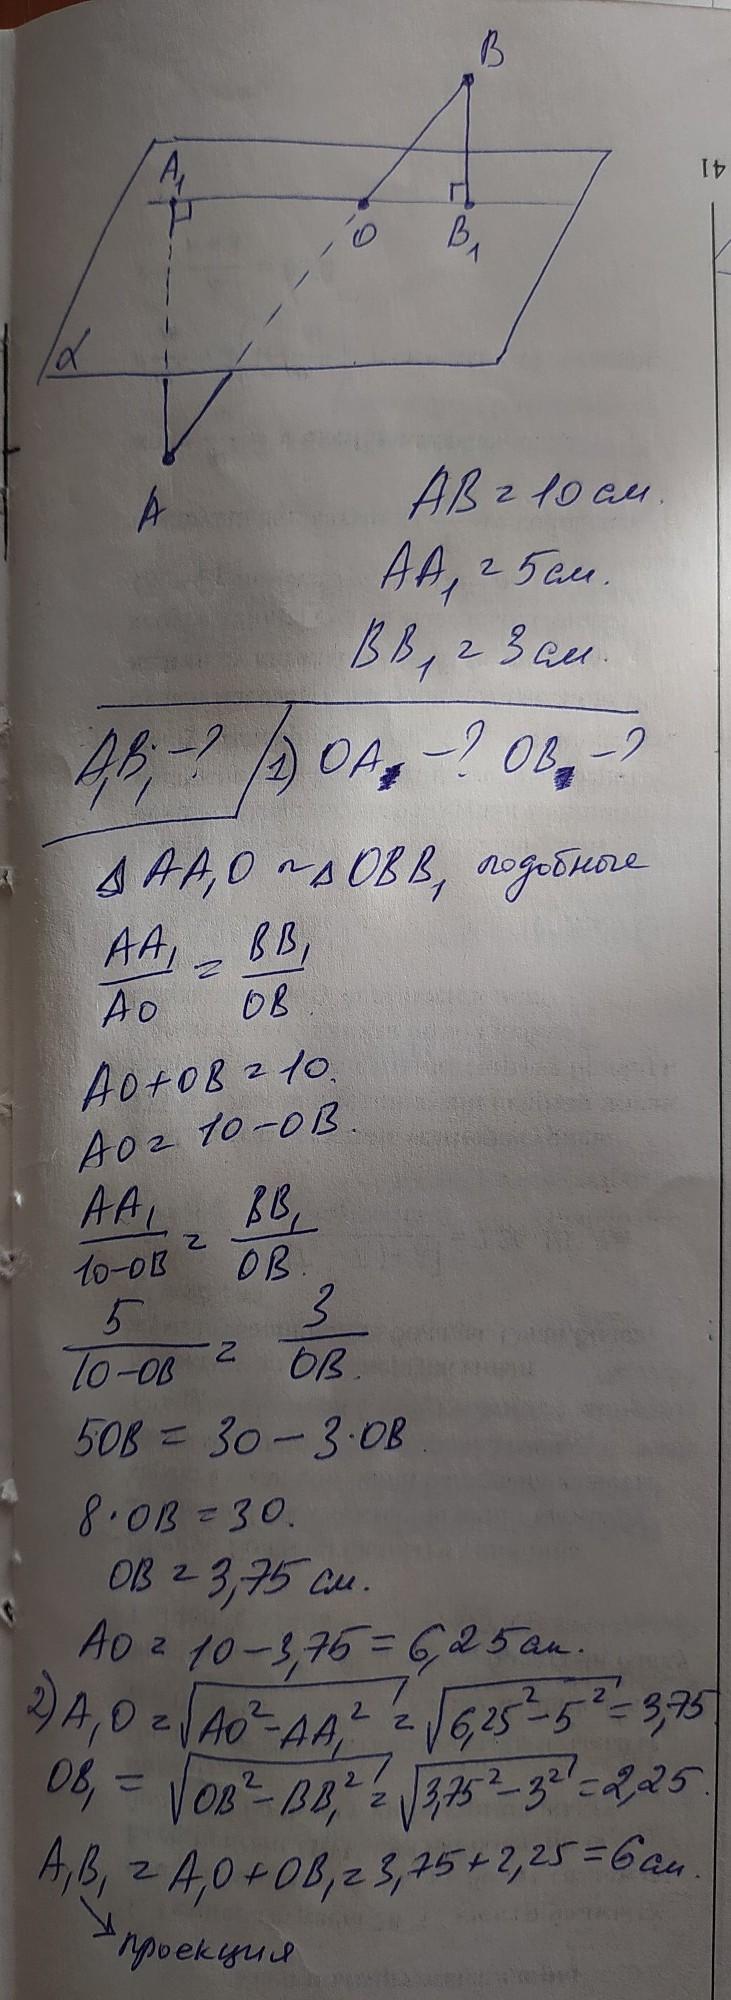 B
A₁
O
B₁
α
A
41
AB = 10 см.
AA₁ = 5 см.
BB₁ = 3 см.
A₁B₁ - ? 1) OA - ? OB - ?
Δ AA₁O ~ Δ OBB₁ подобные
AA₁/AO = BB₁/OB
AO + OB = 10.
AO = 10 - OB.
AA₁/10-OB = BB₁/OB.
5/10-OB = 3/OB.
5OB = 30 - 3·OB
8·OB = 30.
OB = 3,75 см.
AO = 10 - 3,75 = 6,25 см.
2) A₁O = √AO² - AA₁² = √6,25² - 5² = 3,75
OB₁ = √OB² - BB₁² = √3,75² - 3² = 2,25.
A₁B₁ = A₁O + OB₁ = 3,75 + 2,25 = 6 см.
проекция